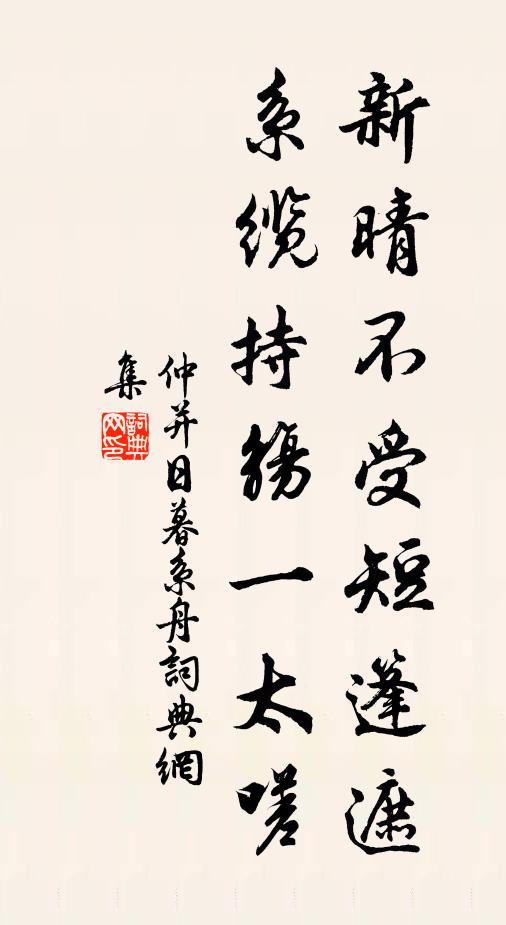 新晴不受短篷遮
系缆持觞一太嗟
仲并日暮系舟詞典網
集
詞典网印